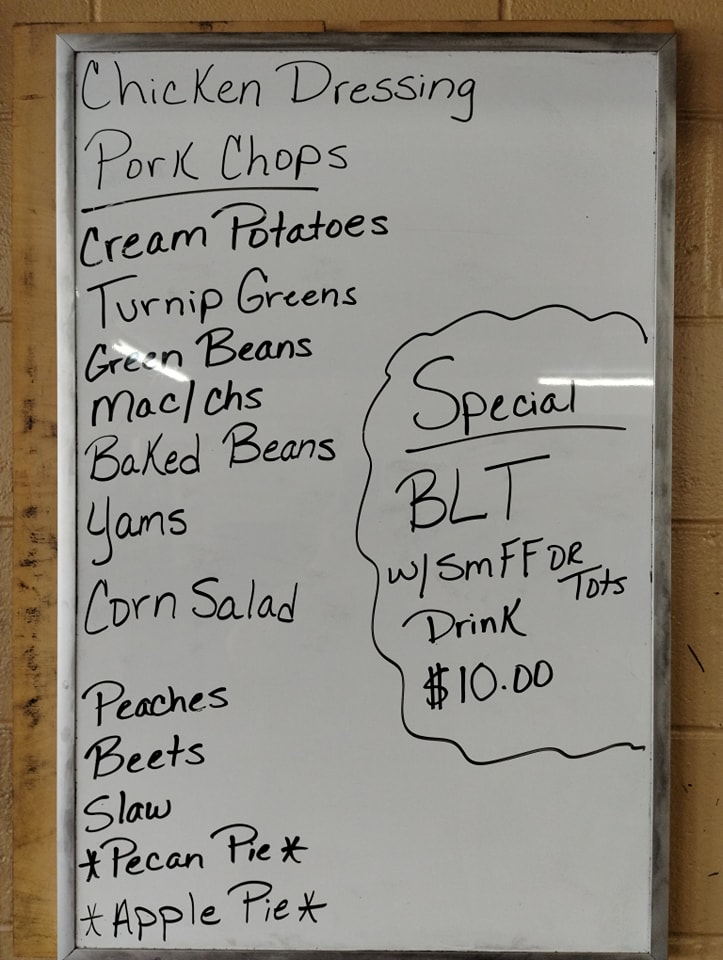 Chicken Dressing
Pork Chops
Cream Potatoes
Turnip Greens
Green Beans
Mac/chs
Baked Beans
Yams
Corn Salad
Peaches
Beets
Slaw
*Pecan Pie*
*Apple Pie*
Special
BLT
w/ Sm FF OR
Tots
Drink
$10.00